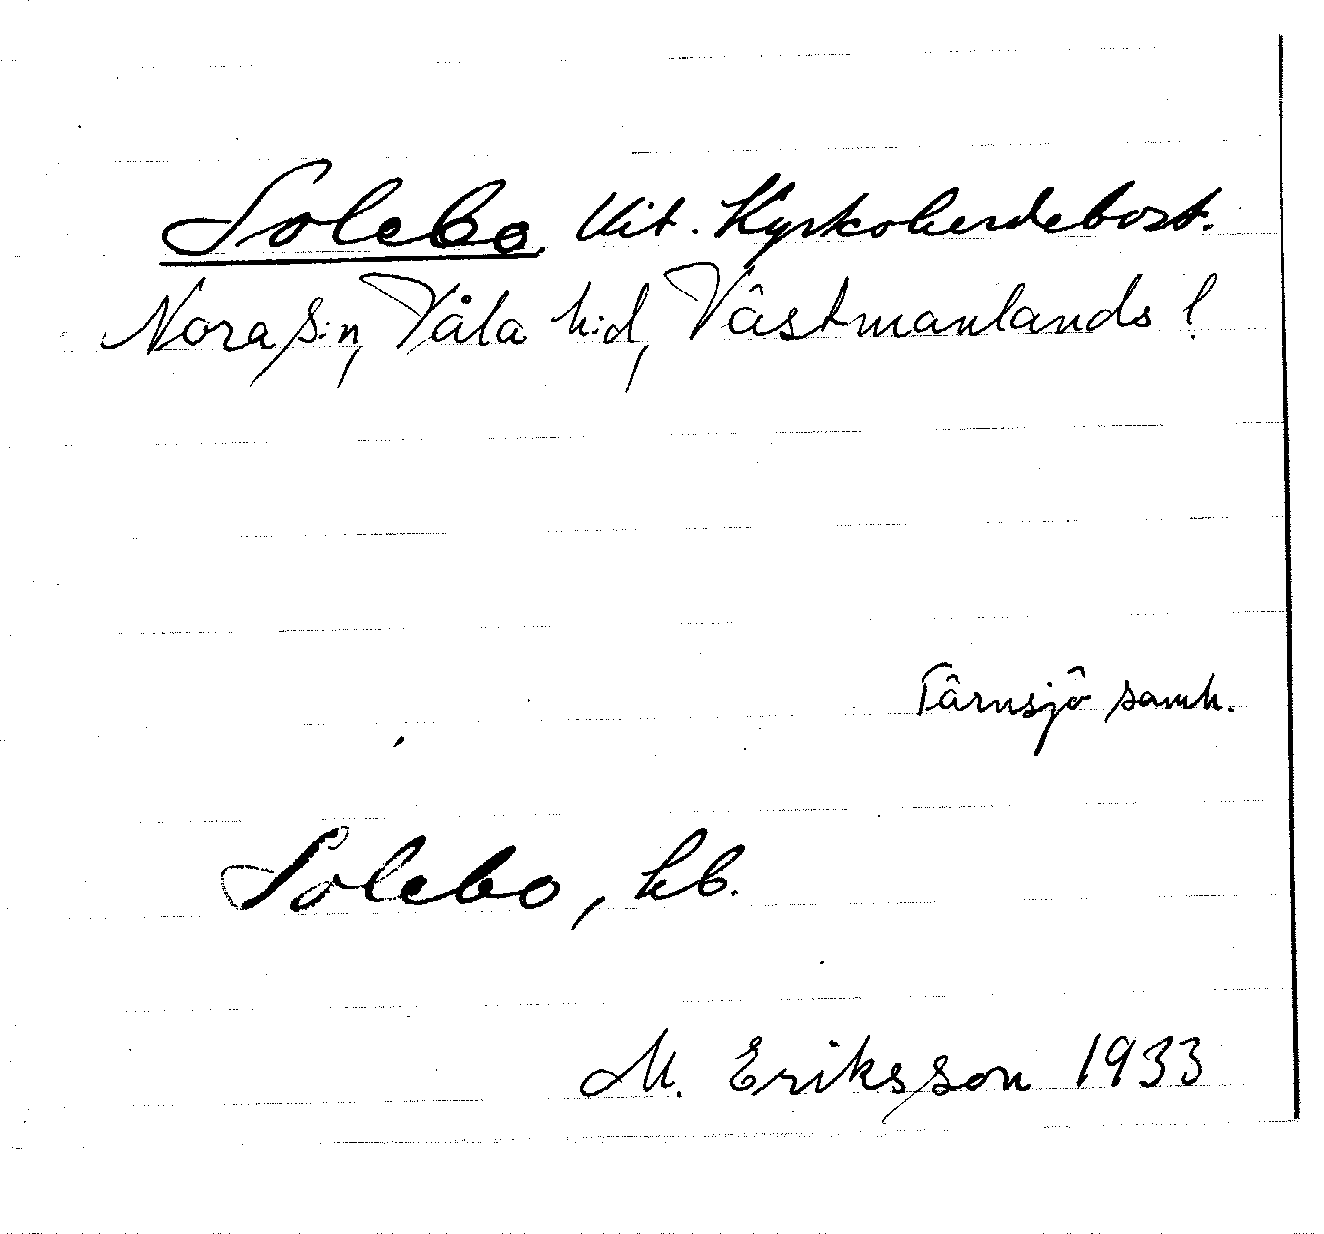 Solebo. Uit. Kyrkoherdebost.
Nora s:n, Våla h:d, Västmanlands l.
Tärnsjö samh.
Solebo, hb.
M. Eriksson 1933